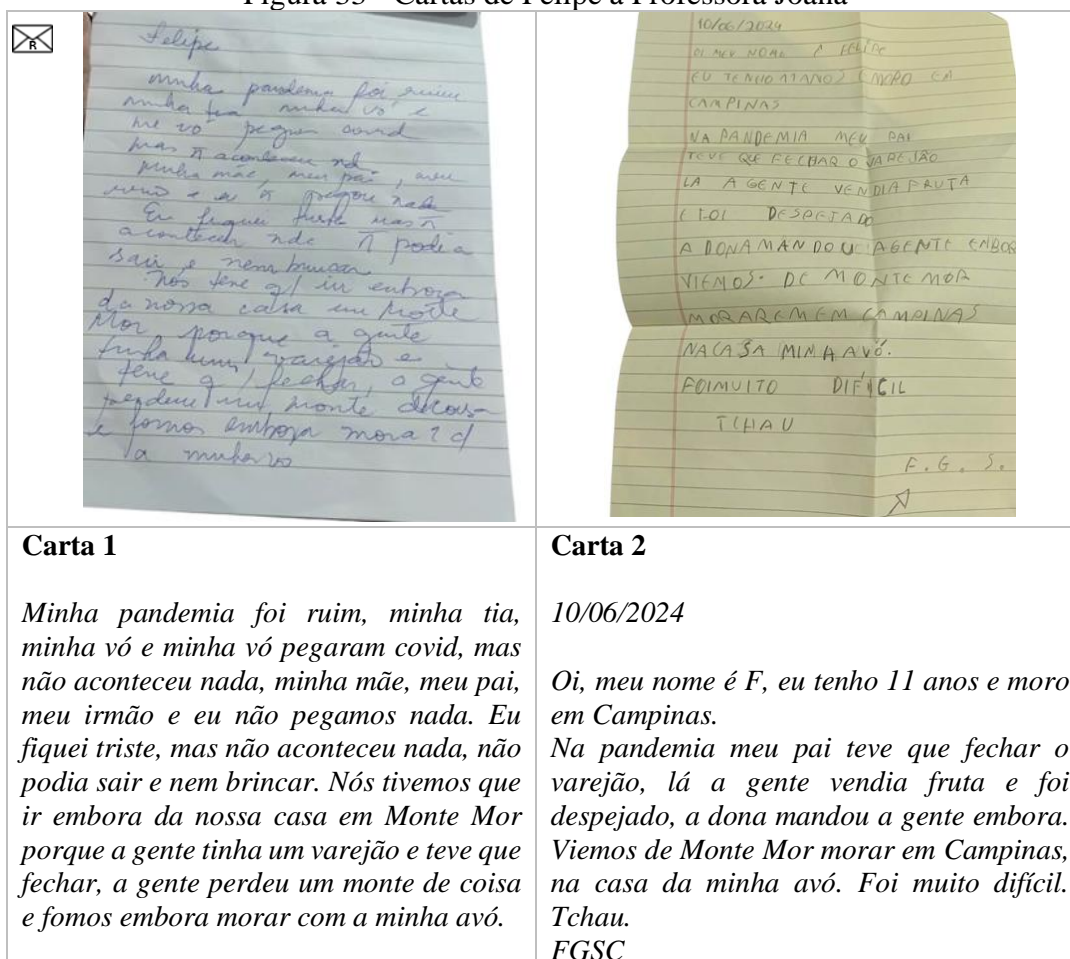 Cartas de Felipe à Professora Joana
R
Felipe
minha pandemia foi ruim
minha tia minha vó e
me vó pegou covid
mas ñ aconteceu nd
minha mãe, meu pai, meu
e eu ñ pegou nada
Eu fiquei triste mas ñ
aconteceu nde ñ podia
sair e nem brincar
nós teve q/ ir embora
da nossa casa em Mote
Mor porque a gente
tinha um varejão e
teve q/ fechar, a gente
perdeu um monte
e fomos embora mora c/
a minha vo
10/06/2024
OI MEU NOME É FELIPE
EU TENHO 11 ANOS E MORO EM
CAMPINAS
NA PANDEMIA MEU PAI
TEVE QUE FECHAR O VAREJÃO
LA A GENTE VENDIA FRUTA
E FOI DESPEJADO
A DONA MANDOU AGENTE EMBOR
VIEMOS DE MONTE MOR
MORAREM EM CAMPINAS
NA CASA MINHA AVÓ.
FOI MUITO DIFÍCIL
TCHAU
F. G. S.
Carta 1
Minha pandemia foi ruim, minha tia,
minha vó e minha vó pegaram covid, mas
não aconteceu nada, minha mãe, meu pai,
meu irmão e eu não pegamos nada. Eu
fiquei triste, mas não aconteceu nada, não
podia sair e nem brincar. Nós tivemos que
ir embora da nossa casa em Monte Mor
porque a gente tinha um varejão e teve que
fechar, a gente perdeu um monte de coisa
e fomos embora morar com a minha avó.
Carta 2
10/06/2024
Oi, meu nome é F, eu tenho 11 anos e moro
em Campinas.
Na pandemia meu pai teve que fechar o
varejão, lá a gente vendia fruta e foi
despejado, a dona mandou a gente embora.
Viemos de Monte Mor morar em Campinas,
na casa da minha avó. Foi muito difícil.
Tchau.
FGSC